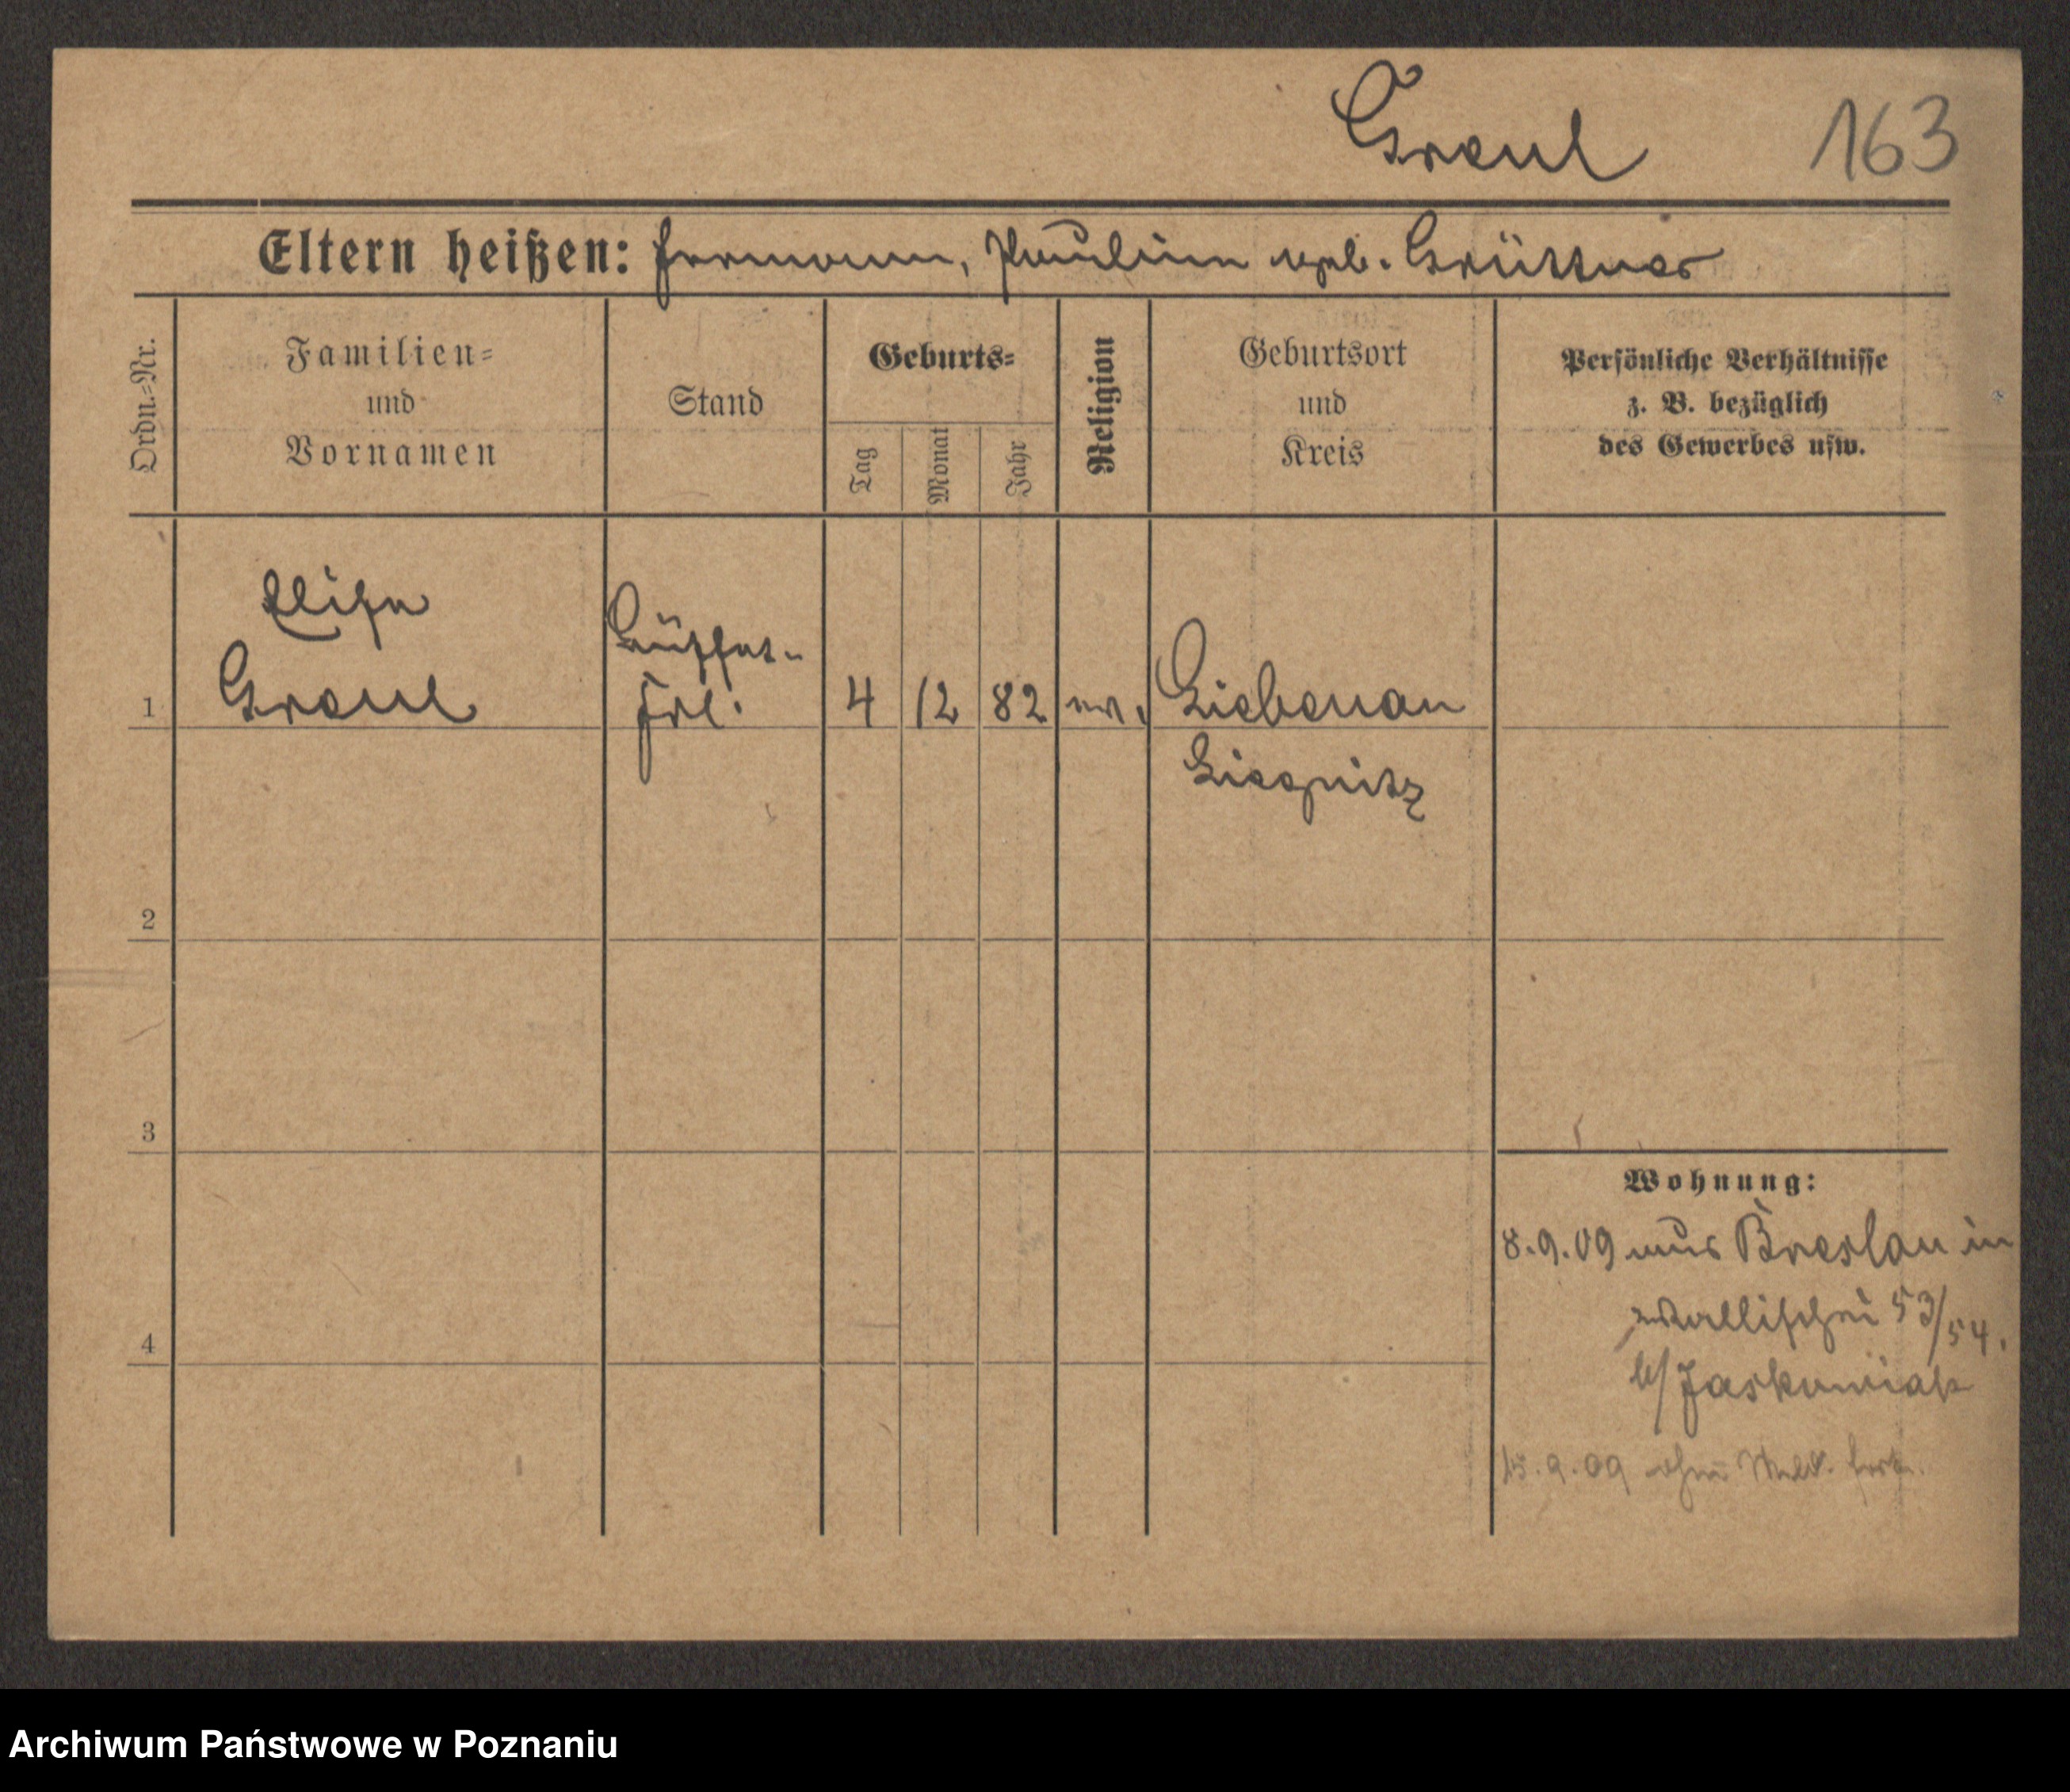 Greul 163
Eltern heißen: Hermann, Pauline geb. Grüttner
Ordn.=Nr.
Familien=
und
Vornamen
Stand
Geburts=
Tag
Monat
Jahr
Religion
Geburtsort
und
Kreis
Persönliche Verhältnisse
z. B. bezüglich
des Gewerbes usw.
Elise
Greul
Büffet-
Frl.
1 4 12 82 ev. Liebenau
Liegnitz
2
3
4
Wohnung:
8.9.09 aus Breslau in
Wallischei 53/54.
b/ Jaskuniak
15.9.09 ohne Meld. fort.
Archiwum Państwowe w Poznaniu